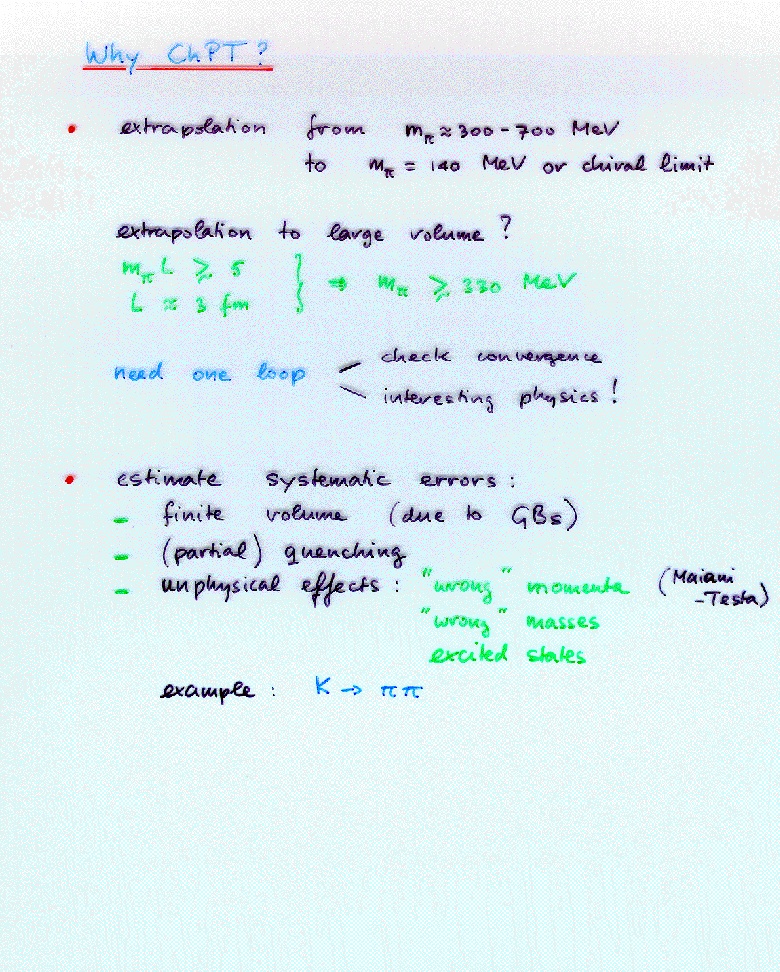 Why ChPT?
• extrapolation from mπ ≈ 300 - 700 MeV
to mπ = 140 MeV or chiral limit
extrapolation to large volume?
mπ L ≳ 5
L ≈ 3 fm } ⇒ mπ ≳ 330 MeV
need one loop < check convergence
interesting physics!
• estimate systematic errors:
- finite volume (due to GBs)
- (partial) quenching
- unphysical effects: "wrong" momenta (Maiani
-Testa)
"wrong" masses
excited states
example: K → ππ